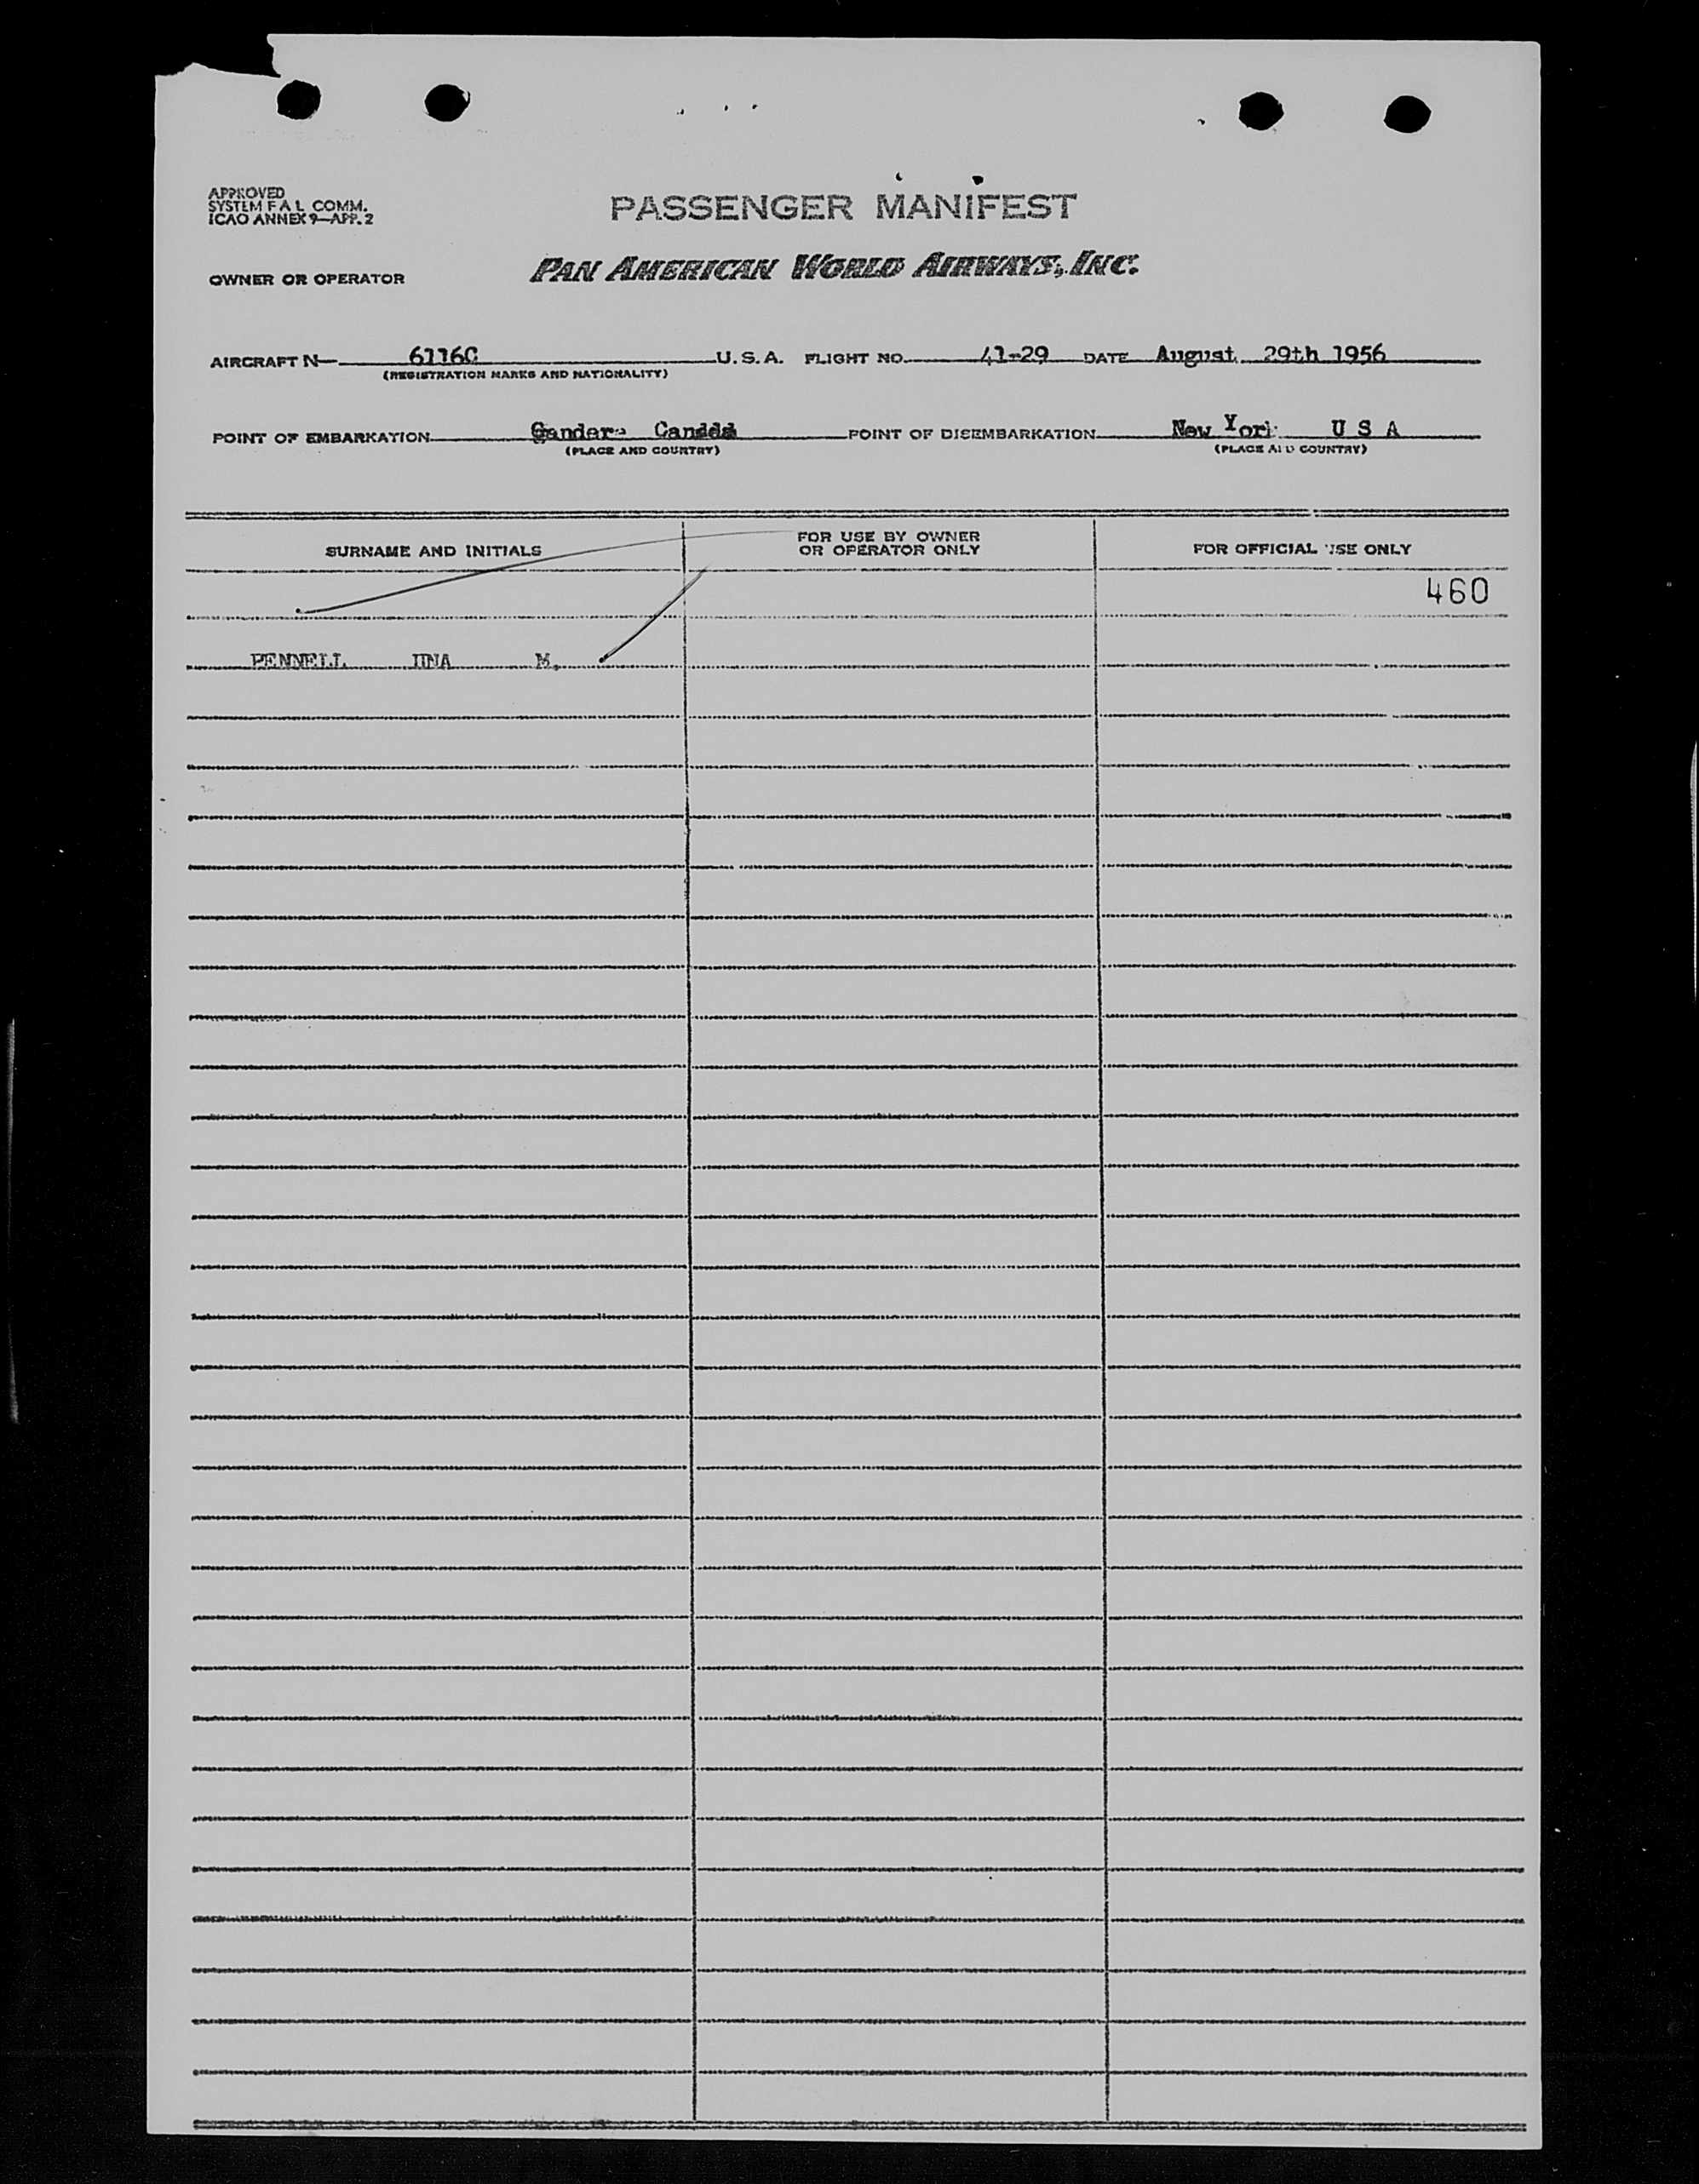 APPROVED
SYSTEM F A L COMM.
ICAO ANNEX 9—APP. 2
PASSENGER MANIFEST
OWNER OR OPERATOR PAN AMERICAN WORLD AIRWAYS, INC.
AIRCRAFT N— 6116C U. S. A. FLIGHT NO. 41-29 DATE August 29th 1956
(REGISTRATION MARKS AND NATIONALITY)
POINT OF EMBARKATION Gander- Canada POINT OF DISEMBARKATION New York U S A
(PLACE AND COUNTRY) (PLACE AND COUNTRY)
SURNAME AND INITIALS FOR USE BY OWNER OR OPERATOR ONLY FOR OFFICIAL USE ONLY
460
PENNELL UNA M.